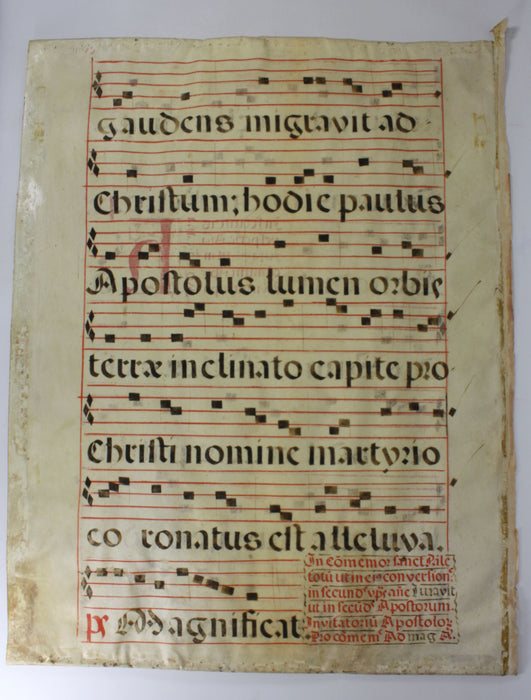 gaudens migravit ad
Christum; hodie paulus
Apostolus lumen orbis
terræ inclinato capite pro
Christi nomine martyrio
co ronatus est alleluya.
Magnificat
In cõmemor sanct
tolũ ut in ei9 conversion.
in secund vp̃r añe Iuravit
ut in secũd Apostorum
Invitatoriũ Apostolor
Pro comem Ad mag A.